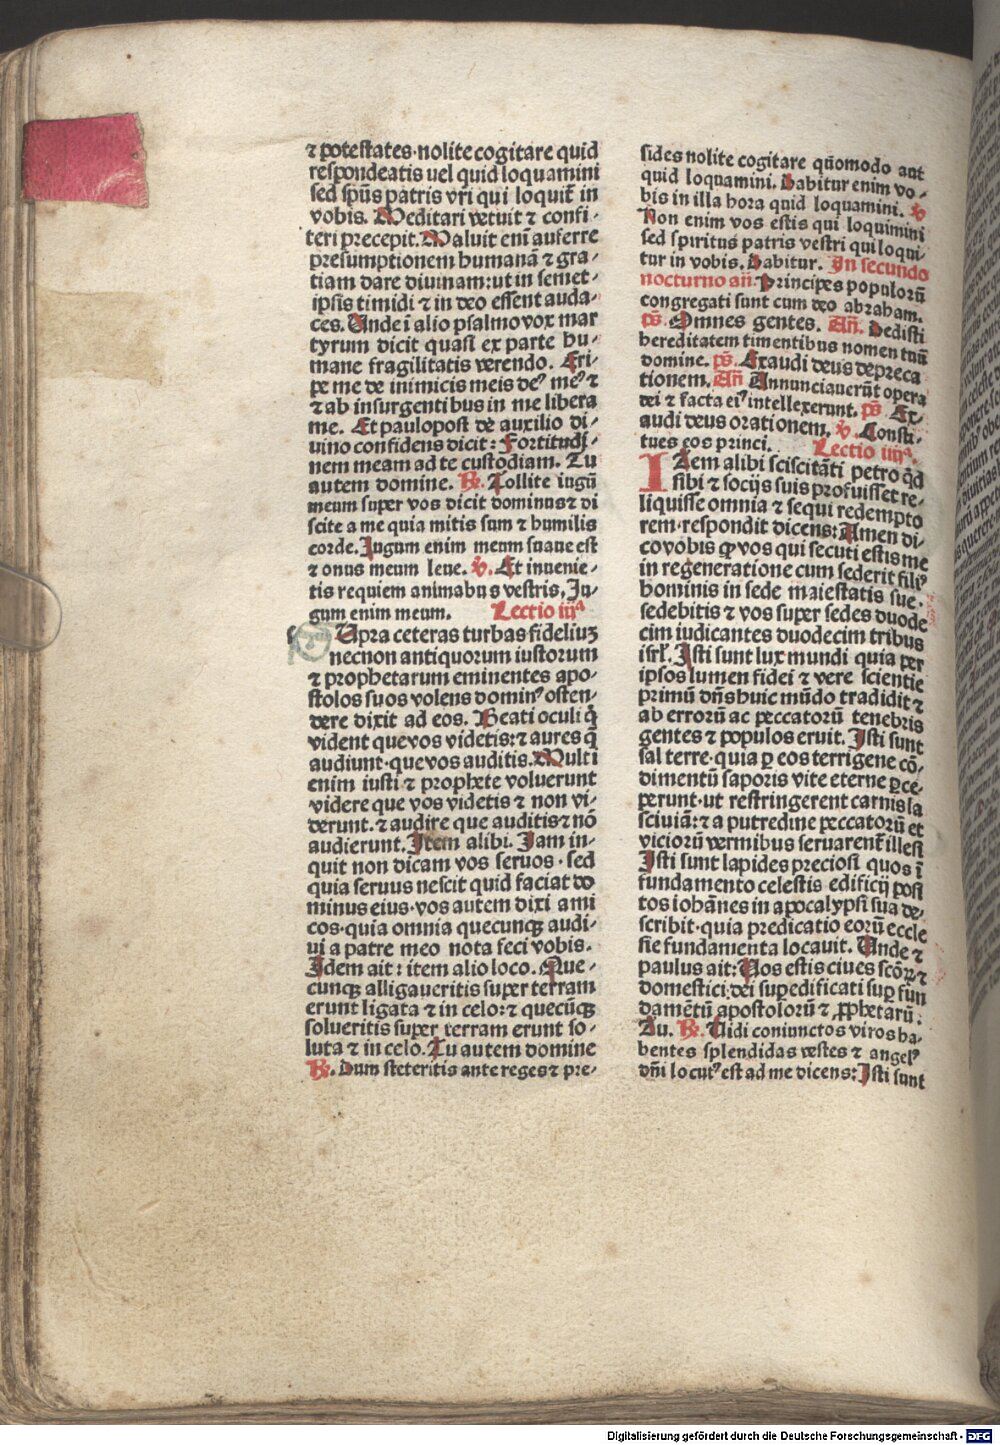 ⁊ potestates·nolite cogitare quid
respondeatis uel quid loquamini
sed spūs patris vr̄i qui loquit̄ in
vobis. Meditari vetuit ⁊ confi-
teri precepit. Maluit eni auferre
presumptionem humanā ⁊ gra-
tiam dare diuinam: ut in semet-
ipsis timidi ⁊ in deo essent auda-
ces. Unde ī alio psalmo vox mar
tyrum dicit quasi ex parte hu-
mane fragilitatis verendo. Eri-
pe me de inimicis meis deꝰ meꝰ ⁊
⁊ ab insurgentibus in me libera
me. Et paulopost de auxilio di-
uino confidens dicit: Fortitudi-
nem meam ad te custodiam. Tu
autem domine. ℟. Tollite iugū
meum super vos dicit dominus ⁊ di
scite a me quia mitis sum ⁊ humilis
corde. Jugum enim meum suaue est
⁊ onus meum leue. ℣. Et inuenie-
tis requiem animabus vestris. Ju-
gum enim meum. Lectio iijᵃ
Supra ceteras turbas fideliuꝫ
necnon antiquorum iustorum
⁊ prophetarum eminentes apo-
stolos suos volens dominꝰ osten-
dere dixit ad eos. Beati oculi q̄
vident que vos videtis: ⁊ aures q̄
audiunt·que vos auditis. Multi
enim iusti ⁊ prophete voluerunt
videre que vos videtis ⁊ non vi-
derunt. ⁊ audire que auditis ⁊ nō
audierunt. Item alibi. Jam in-
quit non dicam vos seruos·sed
quia seruus nescit quid faciat do
minus eius·vos autem dixi ami
cos·quia omnia quecunqꝫ audi-
ui a patre meo nota feci vobis.
Idem ait: item alio loco. Que-
cunqꝫ alligaueritis super terram
erunt ligata ⁊ in celo: ⁊ quecūqꝫ
solueritis super terram erunt so-
luta ⁊ in celo. Tu autem domine
℟. Dum steteritis ante reges ⁊ pre-
sides nolite cogitare quōmodo aut
quid loquamini. Dabitur enim vo-
bis in illa hora quid loquamini. ℣
Non enim vos estis qui loquimini
sed spiritus patris vestri qui loqui-
tur in vobis. Dabitur. In secundo
nocturno an̄. Principes populorū
congregati sunt cum deo abraham.
ps̄. Omnes gentes. An̄. Dedisti
hereditatem timentibus nomen tuū
domine. ps̄. Exaudi deus depreca
tionem. An̄ Annunciauerūt opera
dei ⁊ facta eiꝰ intellexerunt. ps̄ Ex-
audi deus orationem. ℣. Consti-
tues eos princi. Lectio iiijᵃ.
ITem alibi sciscitāti petro qd̄
sibi ⁊ socijs suis profuisset re-
liquisse omnia ⁊ sequi redempto
rem·respondit dicens: Amen di-
co vobis ꝙ vos qui secuti estis me
in regeneratione cum sederit filiꝰ
hominis in sede maiestatis sue·
sedebitis ⁊ vos super sedes duode
cim iudicantes duodecim tribus
isrl̄. Isti sunt lux mundi quia per
ipsos lumen fidei ⁊ vere scientie
primū dn̄s huic mūdo tradidit ⁊
ab errorū ac peccatorū tenebris
gentes ⁊ populos eruit. Isti sunt
sal terre·quia ꝑ eos terrigene cō-
dimentū saporis vite eterne ꝑce-
perunt·ut restringerent carnis la
sciuiā: ⁊ a putredine peccatorū et
viciorū vermibus seruarent̄ illesi
Isti sunt lapides preciosi quos ī
fundamento celestis edificij posi
tos iohānes in apocalypsi sua de-
scribit·quia predicatio eorū eccle
sie fundamenta locauit. Unde ⁊
paulus ait: Vos estis ciues scōꝝ ⁊
domestici dei suꝑedificati suꝑ fūn
damētū apostolorū ⁊ ꝓphetarū.
Tu. ℟. Vidi coniunctos viros ha-
bentes splendidas vestes ⁊ angelꝰ
dn̄i locutꝰ est ad me dicens: Isti sunt
Digitalisierung gefördert durch die Deutsche Forschungsgemeinschaft - DFG